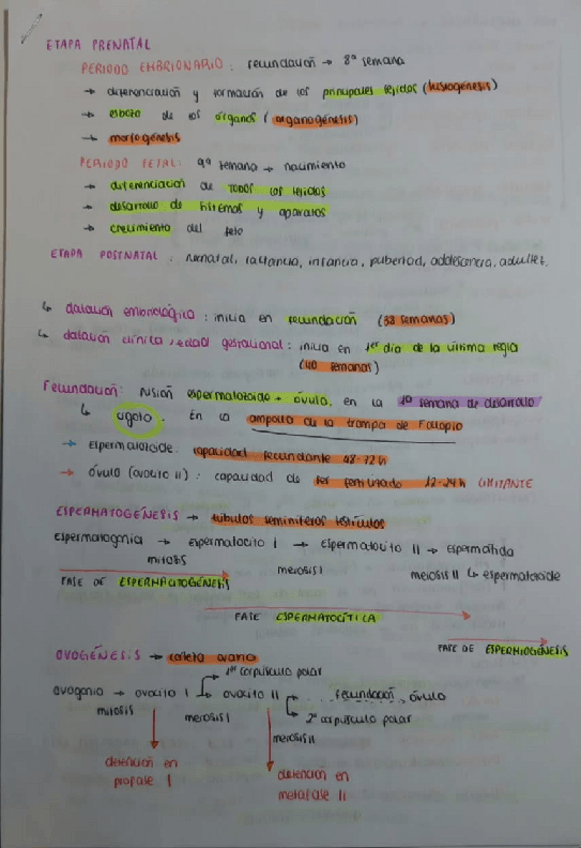 ETAPA PRENATAL
PERIODO EMBRIONARIO: fecundación → 8ª semana
→ diferenciación y formación de los principales tejidos (histogénesis)
→ esbozo de los órganos (organogénesis)
→ morfogénesis
PERIODO FETAL: 9ª semana → nacimiento
→ diferenciación de TODOS los tejidos
→ desarrollo de sistemas y aparatos
→ crecimiento del feto
ETAPA POSTNATAL: neonatal, lactancia, infancia, pubertad, adolescencia, adultez.
↳ datación embriológica: inicia en fecundación (38 semanas)
↳ datación clínica, edad gestacional: inicia en 1er día de la última regla
(40 semanas)
Fecundación: fusión espermatozoide + óvulo, en la 1ª semana de desarrollo
↳ cigoto en la ampolla de la trompa de Falopio
→ espermatozoide: capacidad fecundante 48-72h
→ óvulo (ovocito II): capacidad de ser fertilizado 12-24h LIMITANTE
ESPERMATOGÉNESIS → túbulos seminíferos testículos
espermatogonia → espermatocito I → espermatocito II → espermátida
mitosis meiosis I meiosis II ↳ espermatozoide
FASE DE ESPERMACITOGÉNESIS
FASE ESPERMATOCÍTICA
FASE DE ESPERMIOGÉNESIS
OVOGÉNESIS → corteza ovario
1er corpúsculo polar
ovogonia → ovocito I → ovocito II ... fecundación, óvulo
mitosis meiosis I 2º corpúsculo polar
meiosis II
detención en profase I
detención en metafase II